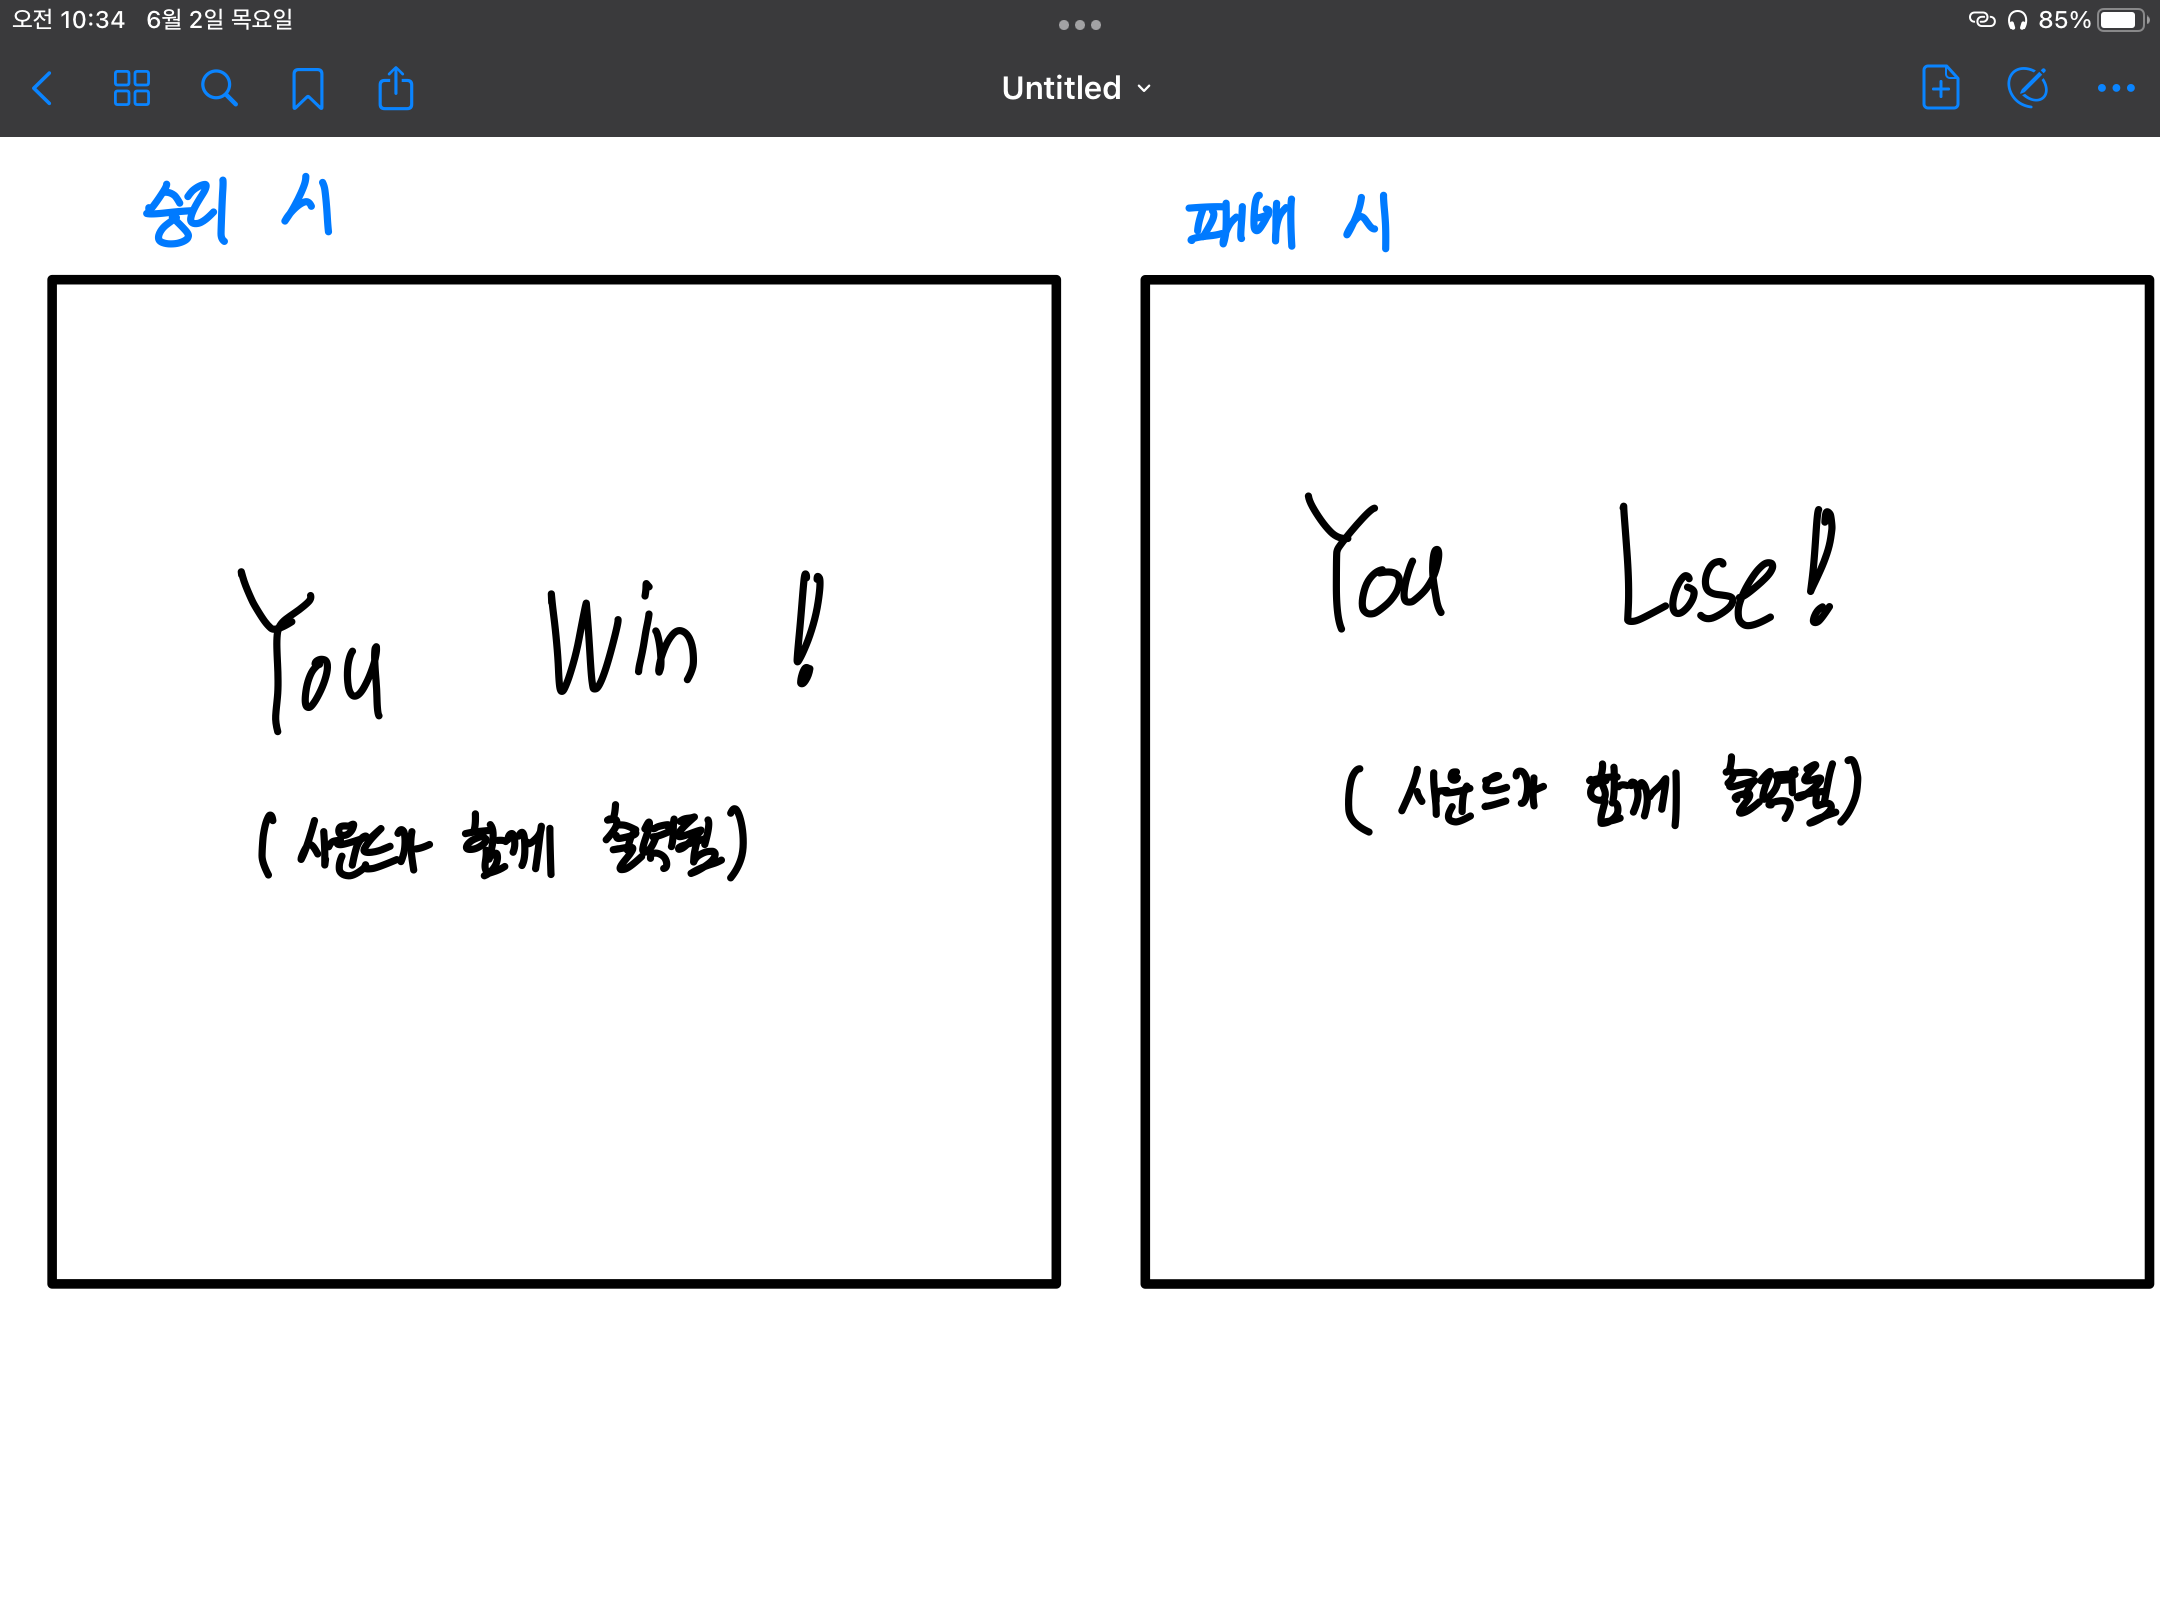 오전 10:34 6월 2일 목요일
85%
Untitled
승리 시
패배 시
You Win!
(사운드가 함께 출력됨)
You Lose!
(사운드가 함께 출력됨)